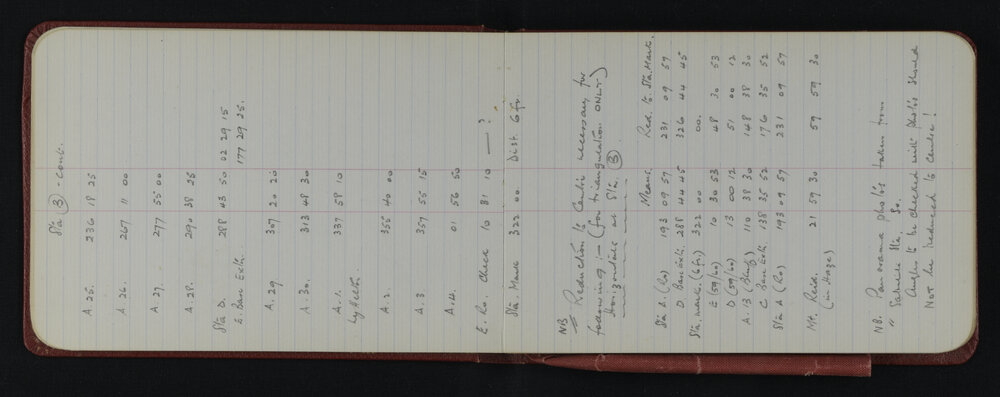 Sta (3) - cont.
A. 25. 236 18 25
A. 26. 267 11 00
A. 27. 277 55 00
A. 28. 290 38 25
Sta D. 288 43 50 02 29 15
E. Base Extn. 177 29 25.
A. 29 307 20 20
A. 30. 313 48 30
A. 1. 337 58 10
A. 2. 355 40 00
A. 3 357 55 15
A. 4. 01 56 50
E. Ro. Check 10 31 10 — ?
Sta Mark 322 00 Dist. 6 ft.
NB Reduction to Centre necessary for
following :- (for triangulation ONLY)
Horizontals at Sta. (3)
Means. Red. to. Sta. Mark.
Sta A. (Ro) 193 09 57 231 09 57
D Base Extn. 288 44 45 326 44 45
Sta. mark. (6 ft) 322 00 00.
E (59/60) 10 30 53 48 30 53
D (59/60) 13 00 12 51 00 12
A. 13 (Bluff) 110 38 30 148 38 30
C Base Extn 138 35 52 176 35 52
Sta A (Ro) 193 09 57 231 09 57
Mt. Reid. 21 59 30 59 59 30
(in Haze)
NB. Panorama photos taken from
Sta. So.
Angles to be checked with photos should
Not be reduced to centre!